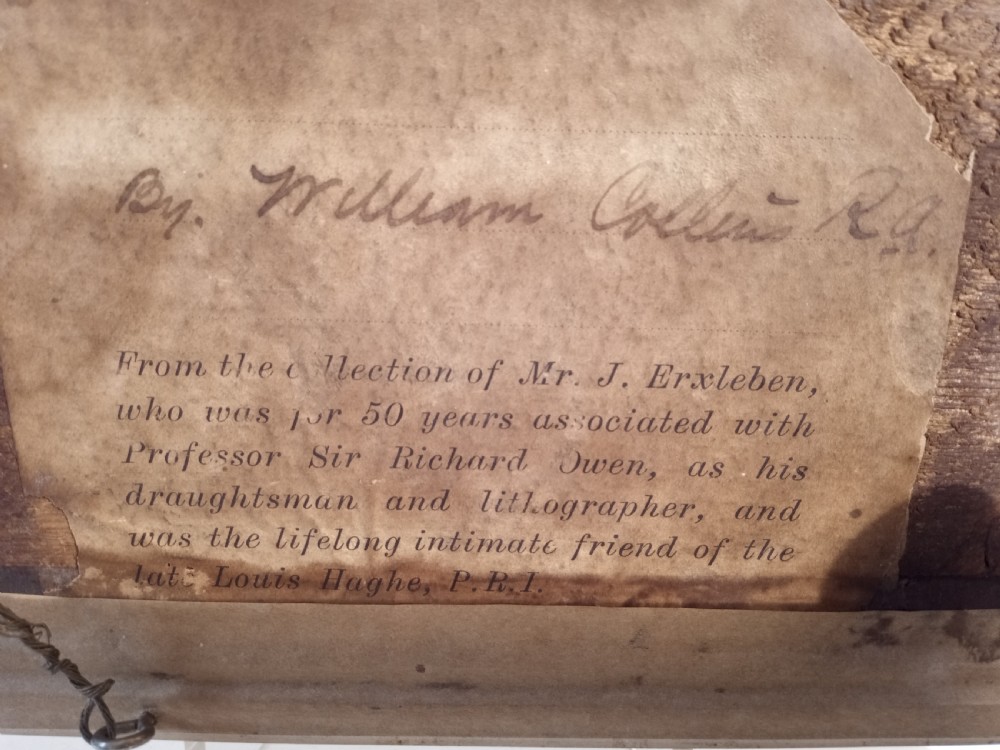 By. William Collins R.A.
From the collection of Mr. J. Erxleben,
who was for 50 years associated with
Professor Sir Richard Owen, as his
draughtsman and lithographer, and
was the lifelong intimate friend of the
late Louis Haghe, P.R.I.